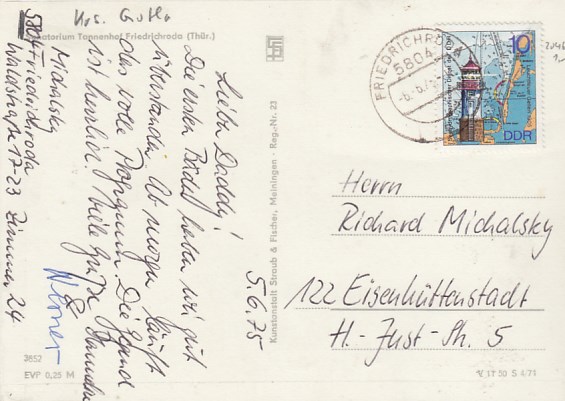 Krs. Gotha
Sanatorium Tannenhof Friedrichroda (Thür.)
Michalsky
5804 Friedrichroda
Waldstraße 17-23 Zimmer 24
5.6.75
Liebe Daddy!
Die ersten Bäder haben wir gut
überstanden. Ab morgen läuft
das volle Programm. Die Gegend
ist herrlich! Viele Grüße
Werner &
3852
EVP 0,25 M
Kunstanstalt Straub & Fischer, Meiningen · Reg.-Nr. 23
FRIEDRICHRODA
5804
10
DDR
Herrn
Richard Michalsky
122 Eisenhüttenstadt
H.-Just-Str. 5
V 11 50 S 4/71